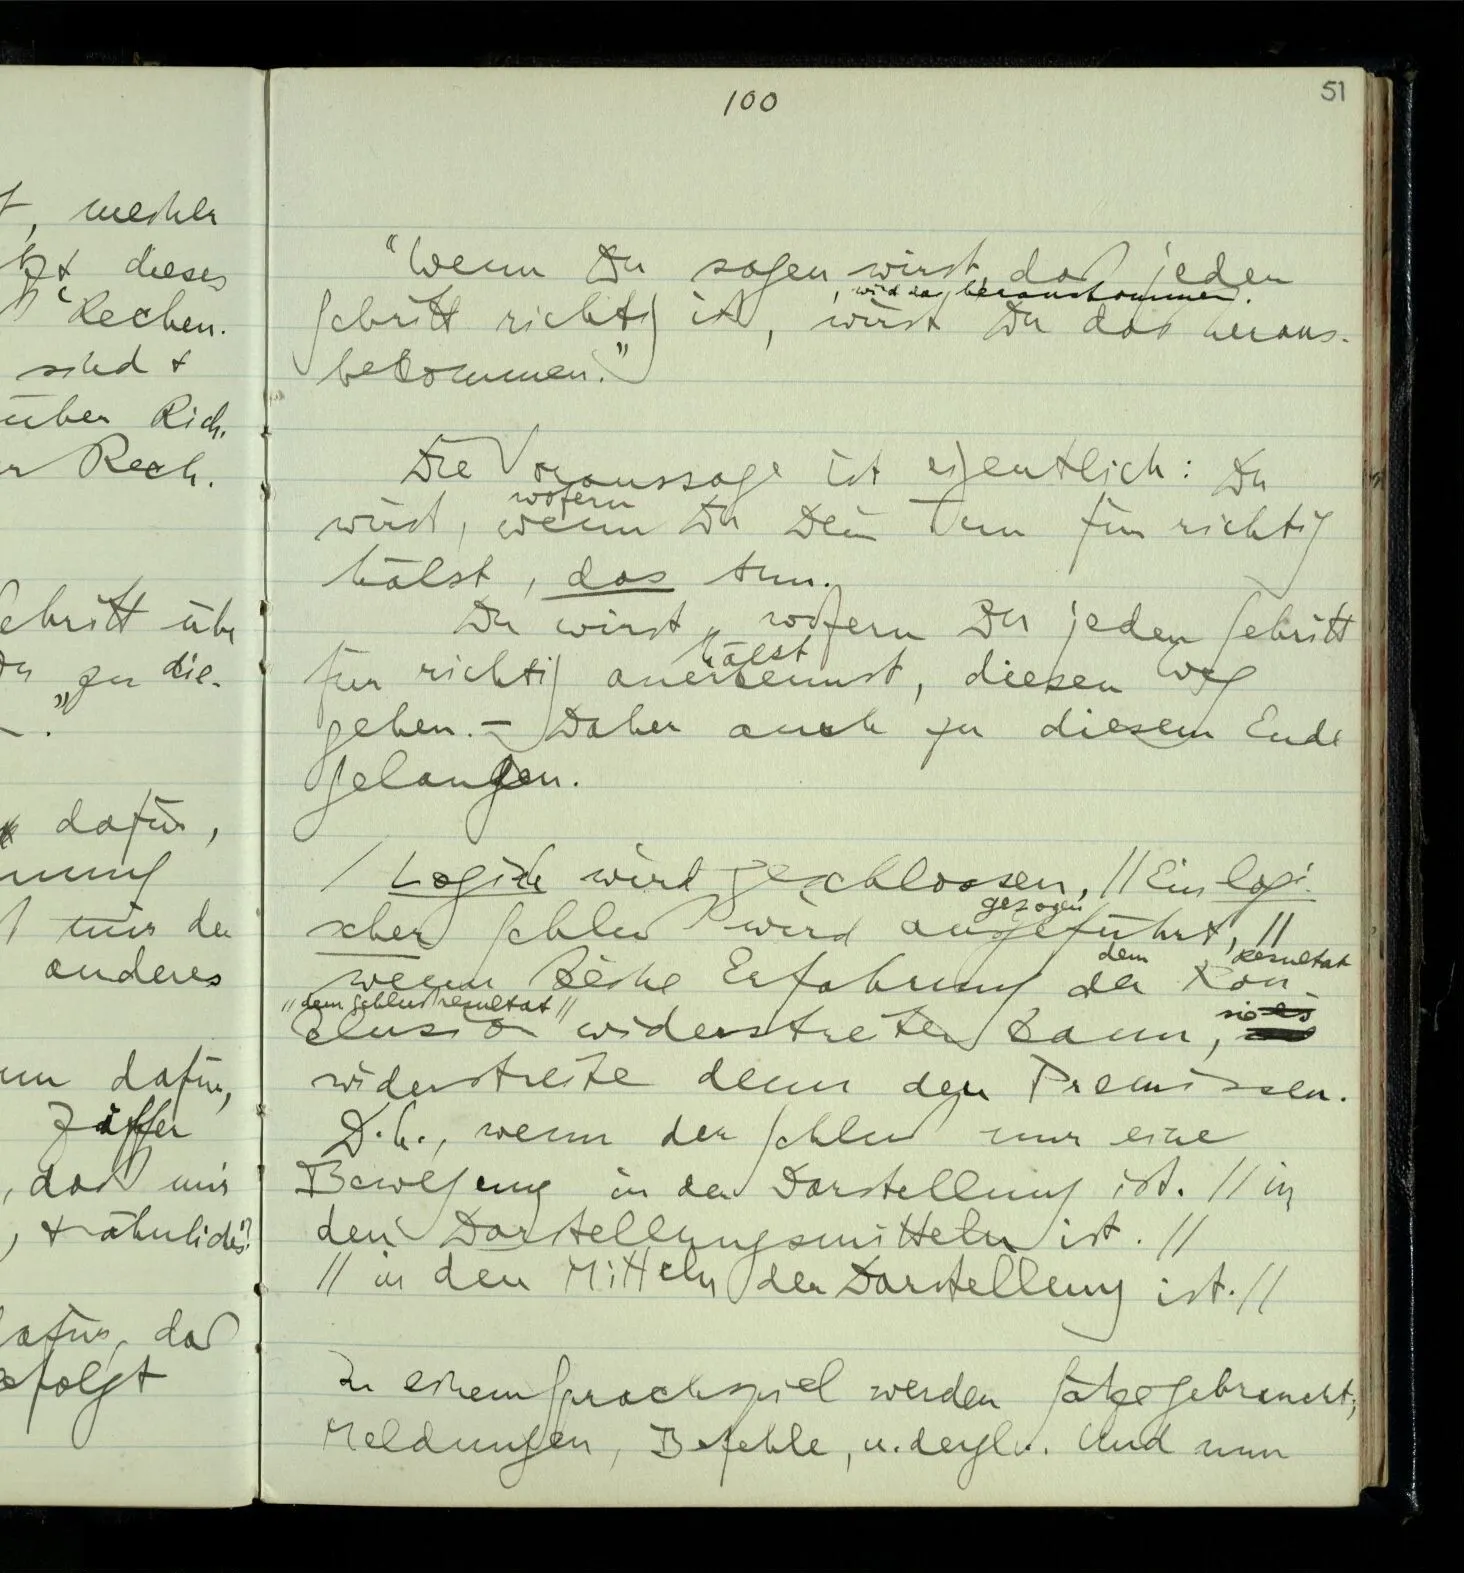 t, welcher
dieses
Rechen.
sind +
über Rich.
Rech.
Schritt über
"zu die-
dafür,
nung
mir der
anderes
dafür,
Ziffer
, daß mir
, + ähnliches?
dafür, daß
gefolgt
100
51
"Wenn Du sagen wirst, daß jeder
, wird das herauskommen.
Schritt richtig ist, wirst Du das heraus-
bekommen."
Die Voraussage ist eigentlich: Du
wofern
wirst, wenn Du Dein Tun für richtig
hälst, das tun.
Du wirst, wofern Du jeden Schritt
hälst
für richtig anerkennst, diesen Weg
gehen. – Daher auch zu diesem Ende
gelangen.
/ Logisch wird geschlossen, // Ein logi-
gezogen
scher Schluß wird ausgeführt, //
dem Resultat
wenn keine Erfahrung der Kon-
// dem Schlußresultat //
sie es
clusion widerstreiten kann,
widerstreite denn den Premissen.
D.h., wenn der Schluß nur eine
Bewegung in der Darstellung ist. // in
den Darstellungsmitteln ist. //
// in den Mitteln der Darstellung ist. //
In einem Sprachspiel werden Sätze gebraucht;
Meldungen, Befehle, u. dergl.. Und nun